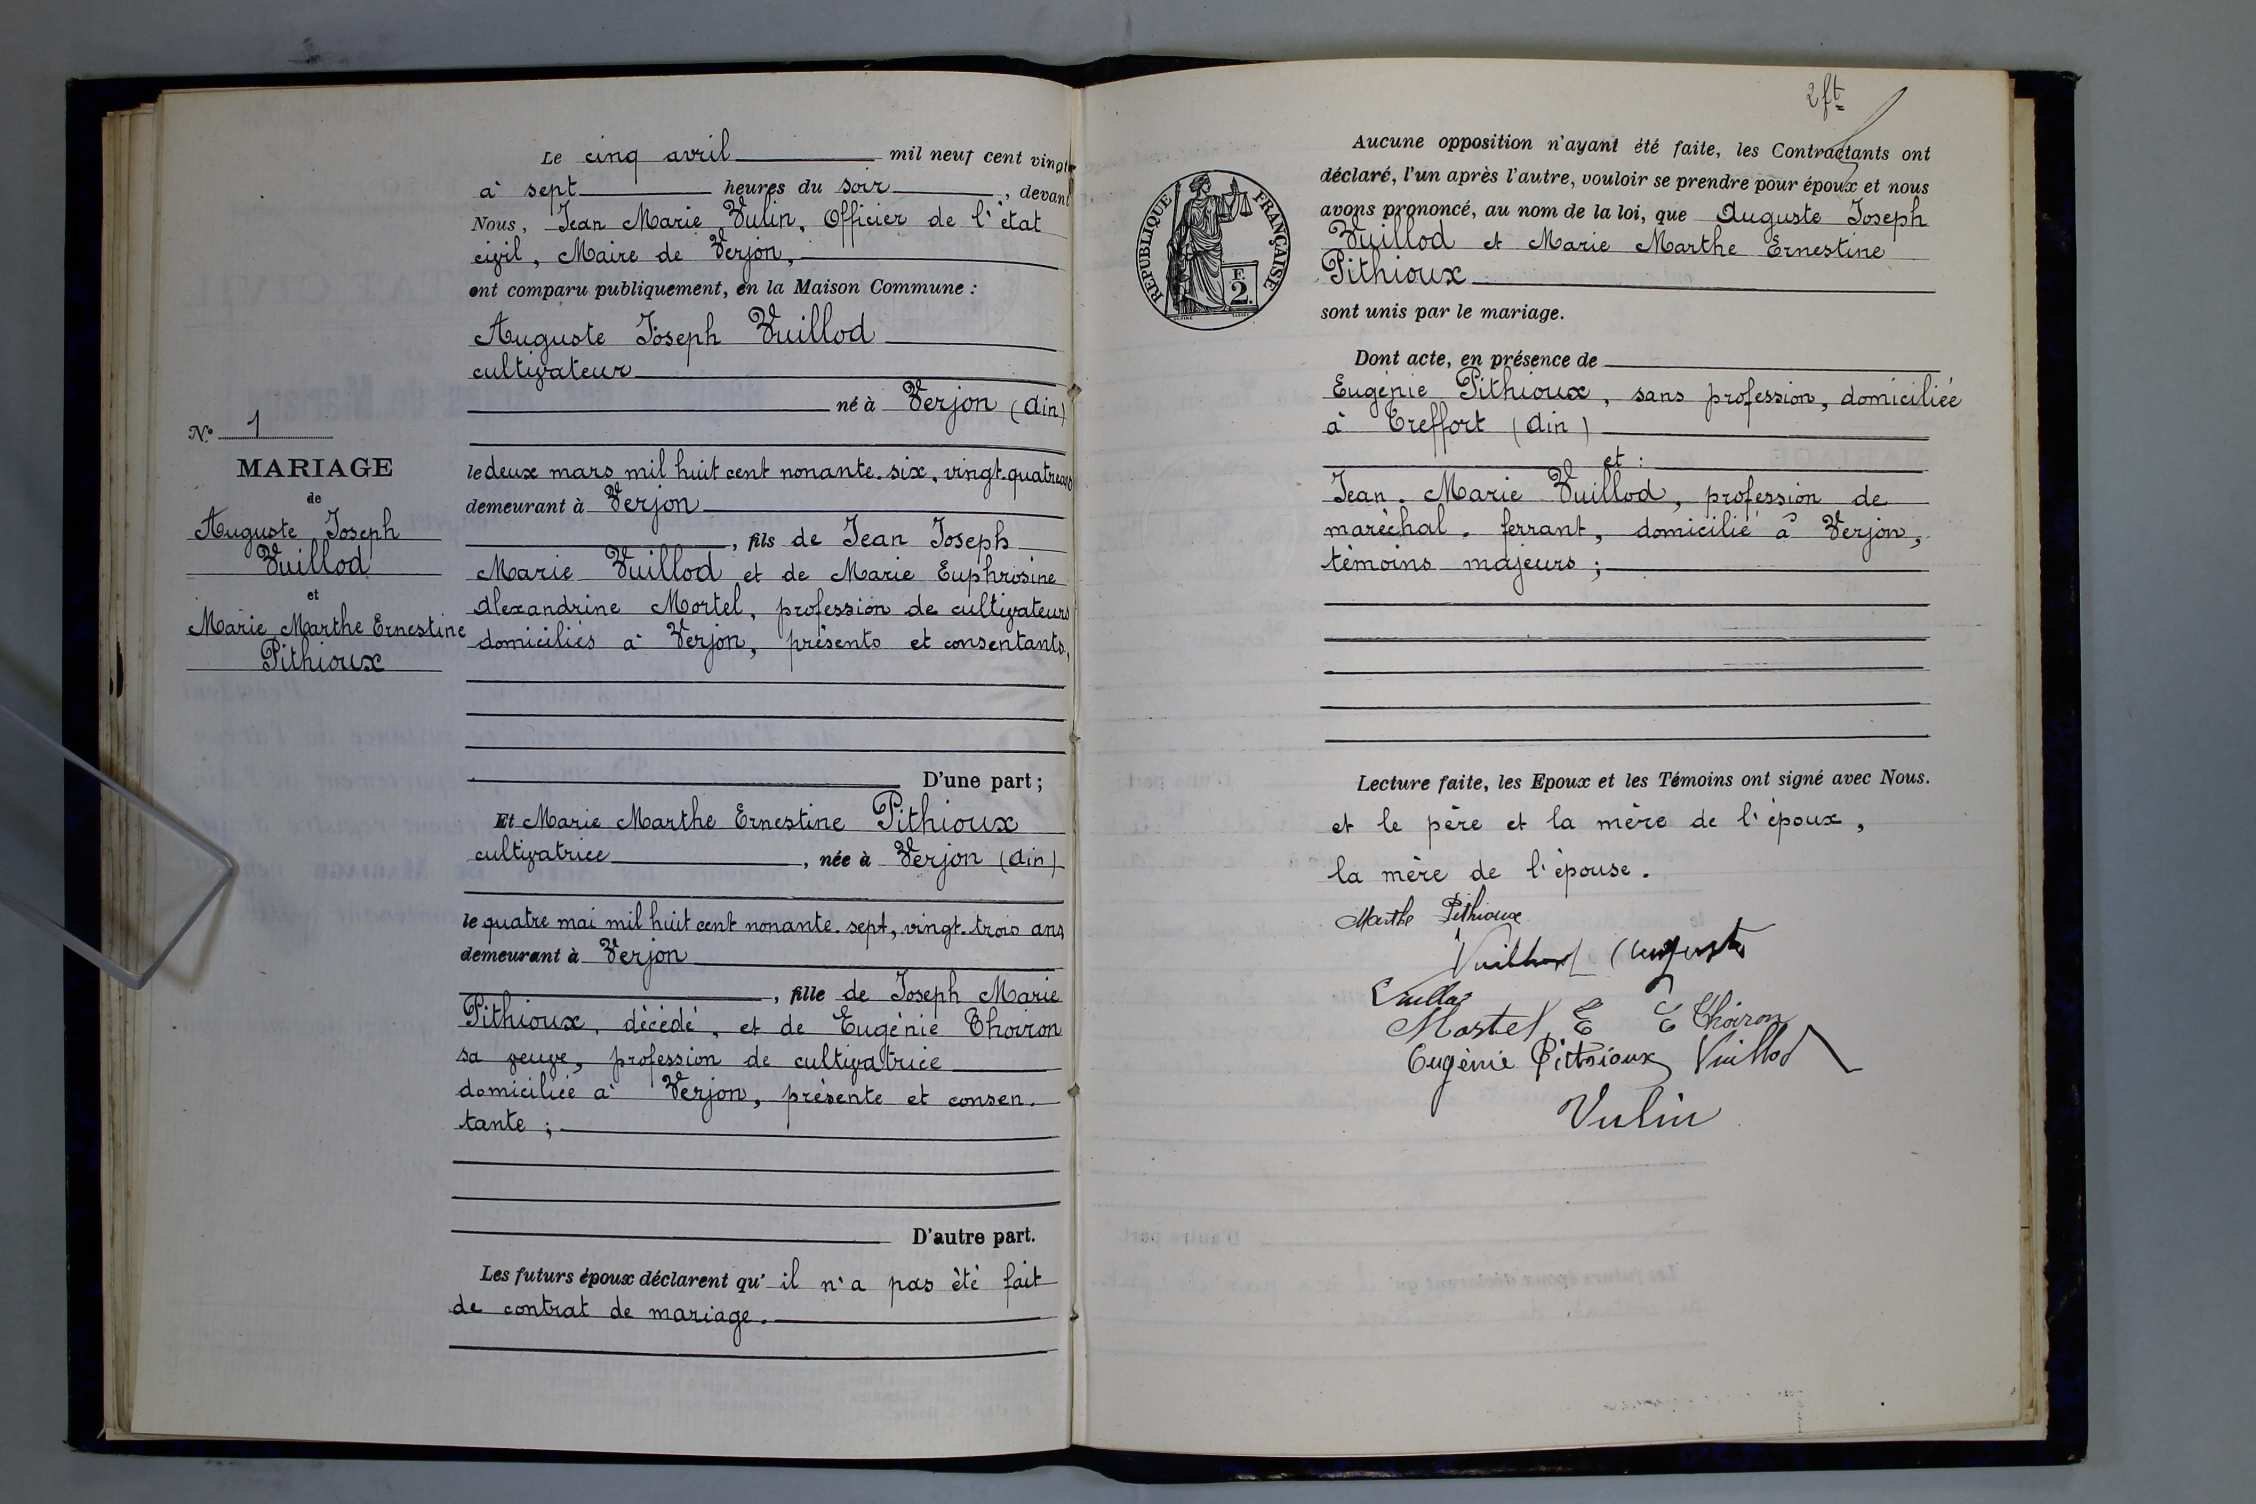 Le cinq avril mil neuf cent vingt
à sept heures du soir, devant
Nous, Jean Marie Vulin, Officier de l'état
civil, Maire de Verjon,
ont comparu publiquement, en la Maison Commune :
Auguste Joseph Vuillod
cultivateur
né à Verjon (Ain)
le deux mars mil huit cent nonante-six, vingt-quatre ans
demeurant à Verjon
, fils de Jean Joseph
Marie Vuillod et de Marie Euphrosine
Alexandrine Mortel, profession de cultivateurs
domiciliés à Verjon, présents et consentants,
D'une part ;
Et Marie Marthe Ernestine Pithioux
cultivatrice, née à Verjon (Ain)
le quatre mai mil huit cent nonante-sept, vingt-trois ans
demeurant à Verjon
, fille de Joseph Marie
Pithioux, décédé, et de Eugénie Thoiron
sa veuve, profession de cultivatrice
domiciliée à Verjon, présente et consen-
tante ;
D'autre part.
Les futurs époux déclarent qu'il n'a pas été fait
de contrat de mariage.
N° 1
MARIAGE
de
Auguste Joseph
Vuillod
et
Marie Marthe Ernestine
Pithioux
2 ft
RÉPUBLIQUE FRANÇAISE
F.
2.
Aucune opposition n'ayant été faite, les Contractants ont
déclaré, l'un après l'autre, vouloir se prendre pour époux et nous
avons prononcé, au nom de la loi, que Auguste Joseph
Vuillod et Marie Marthe Ernestine
Pithioux
sont unis par le mariage.
Dont acte, en présence de
Eugénie Pithioux, sans profession, domiciliée
à Treffort (Ain)
et :
Jean-Marie Vuillod, profession de
maréchal-ferrant, domicilié à Verjon,
témoins majeurs ;
Lecture faite, les Epoux et les Témoins ont signé avec Nous.
et le père et la mère de l'époux,
la mère de l'épouse.
Marthe Pithioux
Vuillod Auguste
Vuillod
Mortel E E Thoiron
Eugénie Pithioux Vuillod
Vulin